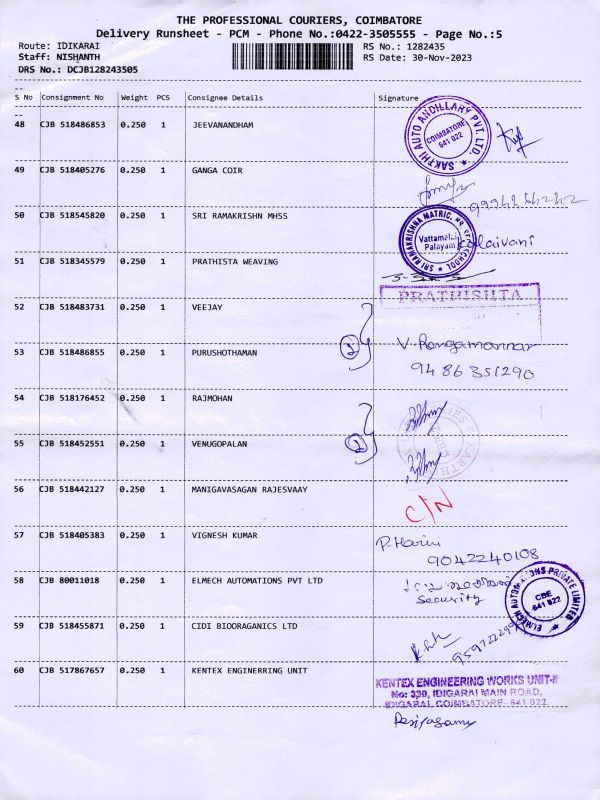 THE PROFESSIONAL COURIERS, COIMBATORE
Delivery Runsheet - PCM - Phone No.:0422-3505555 - Page No.:5
Route: IDIKARAI RS No.: 1282435
Staff: NISHANTH RS Date: 30-Nov-2023
DRS No.: DCJB128243505
S No Consignment No Weight PCS Consignee Details Signature
48 CJB 518486853 0.250 1 JEEVANANDHAM
SAKTHI AUTO ANCILLARY PVT. LTD.
COIMBATORE
641 022
49 CJB 518405276 0.250 1 GANGA COIR
50 CJB 518545820 0.250 1 SRI RAMAKRISHN MHSS
SRI RAMAKRISHNA MATRIC. HR. SEC. SCHOOL
Vattamalai
Palayam
Kalaivani
51 CJB 518345579 0.250 1 PRATHISTA WEAVING
PRATHISHTA
52 CJB 518483731 0.250 1 VEEJAY
53 CJB 518486855 0.250 1 PURUSHOTHAMAN
2 V. Rangamannar
9486351290
54 CJB 518176452 0.250 1 RAJMOHAN
55 CJB 518452551 0.250 1 VENUGOPALAN
2
56 CJB 518442127 0.250 1 MANIGAVASAGAN RAJESVAAY
C/N
57 CJB 518405383 0.250 1 VIGNESH KUMAR
P. Harini
9042240108
58 CJB 80011018 0.250 1 ELMECH AUTOMATIONS PVT LTD
Security
ELMECH AUTOMATIONS PRIVATE LIMITED
CBE
641 022
59 CJB 518455871 0.250 1 CIDI BIOORAGANICS LTD
60 CJB 517867657 0.250 1 KENTEX ENGINERRING UNIT
KENTEX ENGINEERING WORKS UNIT-II
No: 339, IDIGARAI MAIN ROAD,
IDIGARAI, COIMBATORE- 641 022
Periyasamy